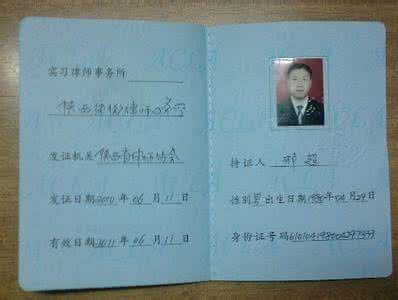 实习律师事务所
陕西律师事务所
发证机关 陕西省律师协会
发证日期 2010 年 06 月 11 日
有效日期 2011 年 06 月 11 日
持证人 郑超
性别 男 出生日期 1980 年 04 月 29 日
身份证号码